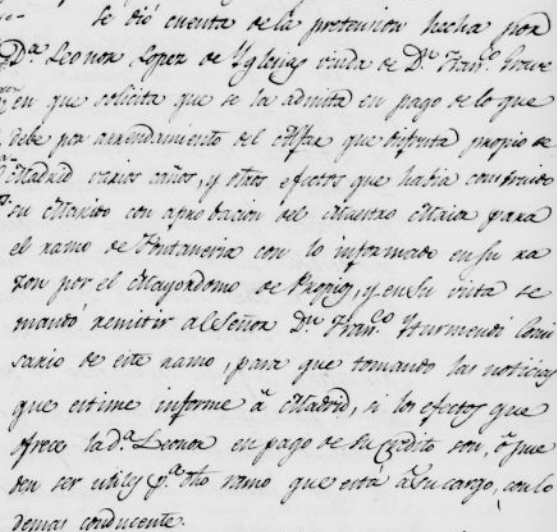 Se dió cuenta de la pretension hecha por
D.ª Leonor Lopez de Yglesias viuda de D.n Fran.co
en que solicita que se la admita en pago de lo que
debe por arrendamiento del Alfar que disfruta propio de
Madrid varios caños, y otros efectos que habia construido
su Marido con aprobacion del Maestro Maior para
el ramo de Fontaneria con lo informado en su ra
zon por el Mayordomo de Propios, y en su vista se
mandó remitir al Señor D.n Fran.co Yturmendi Comi
sario de este ramo, para que tomando las noticias
que estime informe â Madrid, si los efectos que
ofrece la d.ª Leonor en pago de su credito son, ô pue
den ser utiles p.ª dho ramo que está â su cargo, con lo
demas conducente.